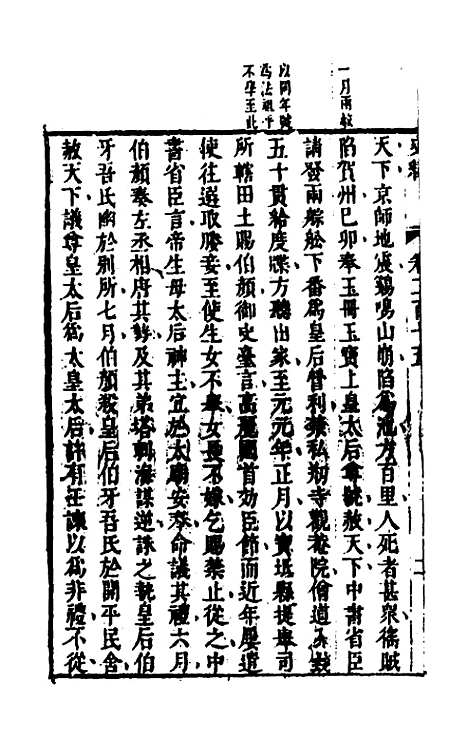 一月兩赦
以同年號
爲法祖乎
不學至此
史緯 卷二百十五 二
天下京師地震鷄鳴山崩陷爲池方百里人死者甚衆徭賊
陷賀州巳卯奉玉冊玉寶上皇太后尊號赦天下中書省臣
請發兩綜舩下番爲皇后營利擅私剏寺觀菴院僧道入錢
五十貫給度牒方聽出家至元元年正月以寶坻縣提舉司
所轄田土賜伯顏御史臺言高麗國首効臣節而近年屢遣
使往選取媵妾至使生女不舉女長不嫁乞賜禁止從之中
書省臣言帝生母太后神主宜於太廟安奉命議其禮六月
伯顏奏左丞相唐其勢及其弟塔剌海謀逆誅之執皇后伯
牙吾氏幽於別所七月伯顏殺皇后伯牙吾氏於開平民舍
赦天下議尊皇太后爲太皇太后許有壬諫以爲非禮不從